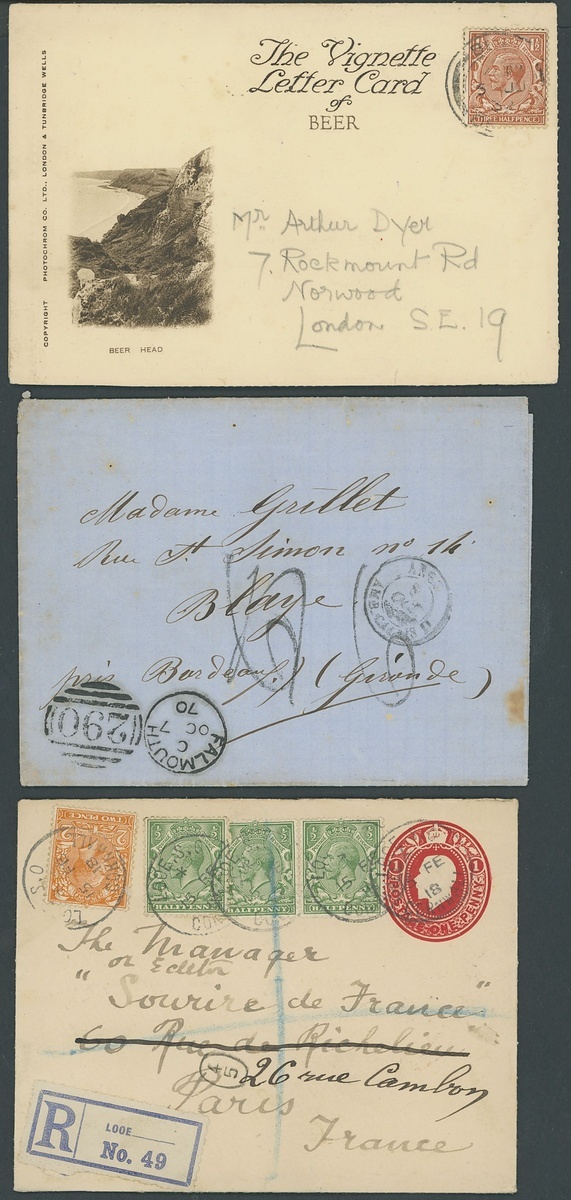 The Vignette
Letter Card
of
BEER
1½
1½
THREE HALFPENCE
COPYRIGHT PHOTOCHROM CO. LTD., LONDON & TUNBRIDGE WELLS
BEER HEAD
Mr Arthur Dyer
7. Rockmount Rd
Norwood
London S.E. 19
Madame Grillet
Rue St Simon no 14
Blaye
près Bordeaux (Gironde)
290
FALMOUTH
C
OC 7
70
TWO PENCE
HALFPENNY
HALFPENNY
HALFPENNY
POSTAGE ONE PENNY
1
1
FE
18
The Manager
or Editor
"Sourire de France"
60 Rue de Richelieu
51
26 rue Cambon
Paris
France
R
LOOE
No. 49